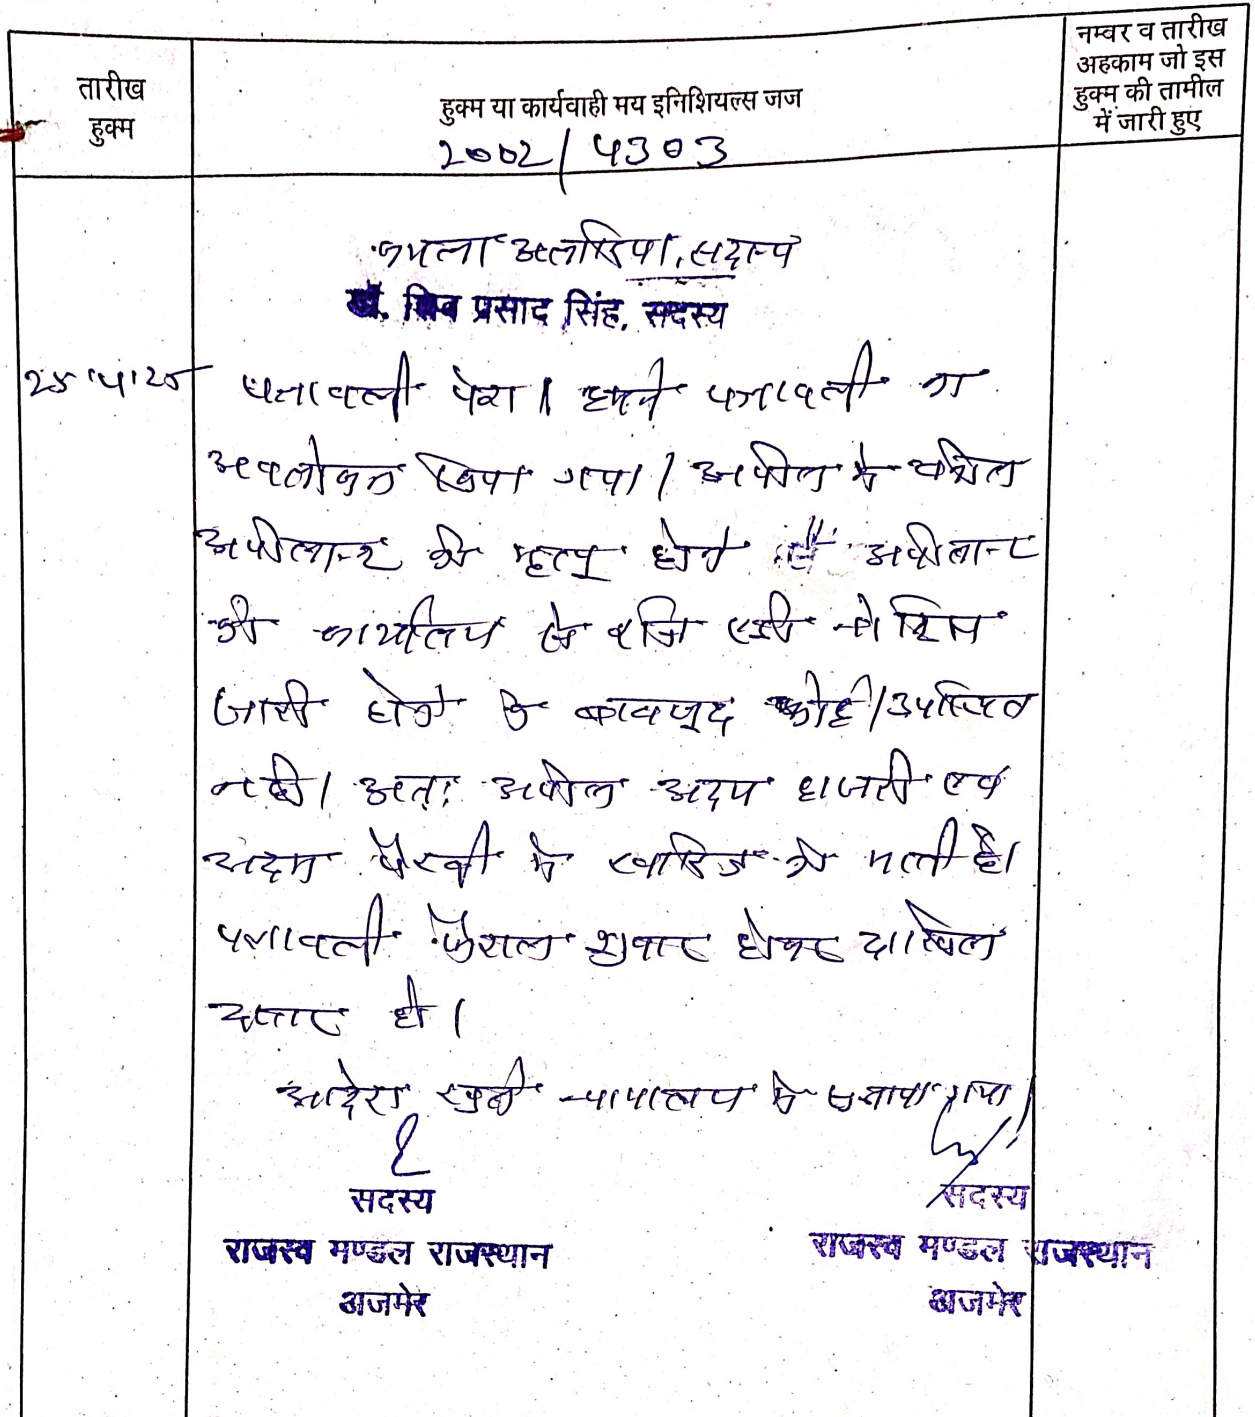 तारीख
हुक्म
हुक्म या कार्यवाही मय इनिशियल्स जज
नम्वर व तारीख
अहकाम जो इस
हुक्म की तामील
में जारी हुए
2002/4303
कमला अलारिया, सदस्य
डॉ. शिव प्रसाद सिंह, सदस्य
25.4.25 पत्रावली पेश। हमने पत्रावली का
अवलोकन किया गया। अपील मे वर्णित
अपीलान्ट की मृत्यु होने से अपीलान्ट
को कार्यालय से रजि एडी नोटिस
जारी होने के बावजूद कोई उपस्थित
नही। अतः अपील अदम हाजरी एवं
अदम पैरवी मे खारिज की जाती है।
पत्रावली फैसल शुमार होकर दाखिल
दफ्तर हो।
आदेश खुले न्यायालय मे सुनाया गया।
सदस्य
राजस्व मण्डल राजस्थान
अजमेर
सदस्य
राजस्व मण्डल राजस्थान
अजमेर